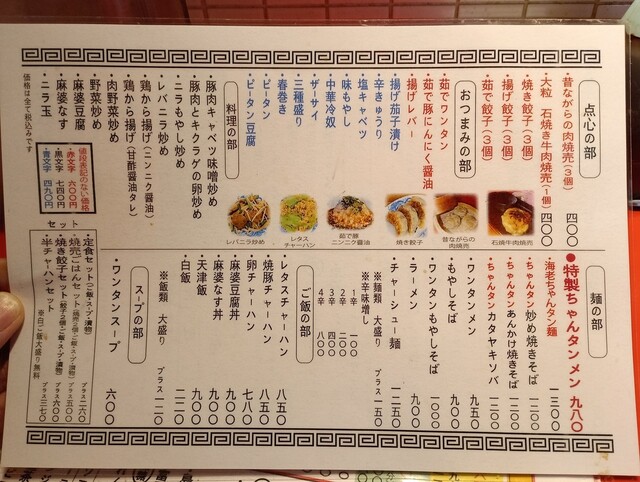 点心の部
・昔ながらの肉焼売（３個） 四〇〇
・大粒 石焼き牛肉焼売（１個） 四〇〇
・焼き餃子（３個）
・揚げ餃子（３個）
・茹で餃子（３個）
おつまみの部
・茹でワンタン
・茹で豚にんにく醤油
・揚げレバー
・揚げ茄子漬け
・辛きゅうり
・塩キャベツ
・味もやし
・中華冷奴
・ザーサイ
・三種盛り
・春巻き
・ピータン
・ピータン豆腐
料理の部
・豚肉キャベツ味噌炒め
・豚肉とキクラゲの卵炒め
・ニラもやし炒め
・レバニラ炒め
・鶏から揚げ（ニンニク醤油）
・鶏から揚げ（甘酢醤油タレ）
・肉野菜炒め
・野菜炒め
・麻婆豆腐
・麻婆なす
・ニラ玉
価格は全て税込みです
値段表記のない価格
・赤文字 六〇〇円
・黒文字 七四〇円
・青文字 四九〇円
石焼牛肉焼売
昔ながらの
肉焼売
焼き餃子
茹で豚
ニンニク醤油
レタス
チャーハン
レバニラ炒め
麺の部
●特製ちゃんタンメン 九八〇
・海老ちゃんタン麺 一三〇〇
・ちゃんタン炒め焼きそば 一一〇〇
・ちゃんタンあんかけ焼きそば 一二〇〇
・ちゃんタンカタヤキソバ 一二〇〇
・ワンタンメン 九五〇
・もやしそば 九〇〇
・ワンタンもやしそば 一〇〇〇
・ラーメン 九〇〇
・チャーシュー麺 一二五〇
※麺類 大盛り プラス 一五〇
※辛味増し
１辛 一〇〇
２辛 二〇〇
３辛 三〇〇
４辛 四〇〇
ご飯の部
・レタスチャーハン 八五〇
・焼豚チャーハン 八五〇
・卵チャーハン 七八〇
・麻婆豆腐丼 九〇〇
・麻婆なす丼 九〇〇
・天津飯 九〇〇
・白飯 二二〇
※飯類 大盛り プラス 一二〇
スープの部
・ワンタンスープ 六〇〇
セット
・定食セット（ご飯・スープ・漬物） プラス二六〇
・焼売ごはんセット プラス五〇〇
・焼き餃子セット プラス六〇〇
・半チャーハンセット プラス三七〇
※白ご飯大盛り無料